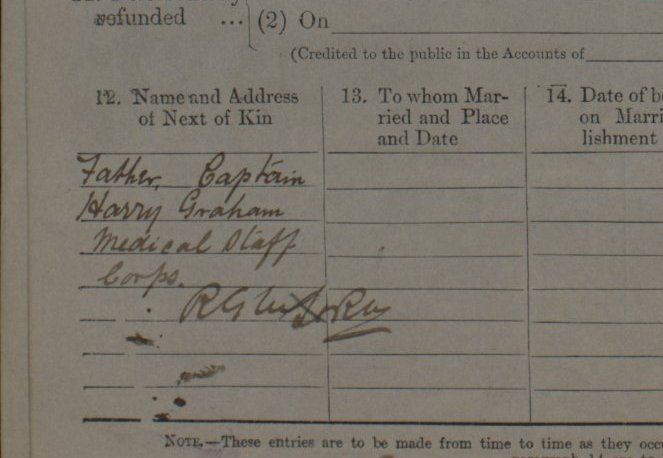 refunded ... (2) On
(Credited to the public in the Accounts of
12. Name and Address
of Next of Kin
13. To whom Mar-
ried and Place
and Date
14. Date of b
on Marri
lishment
Father, Captain
Harry Graham
Medical Staff
Corps.
NOTE.—These entries are to be made from time to time as they occu